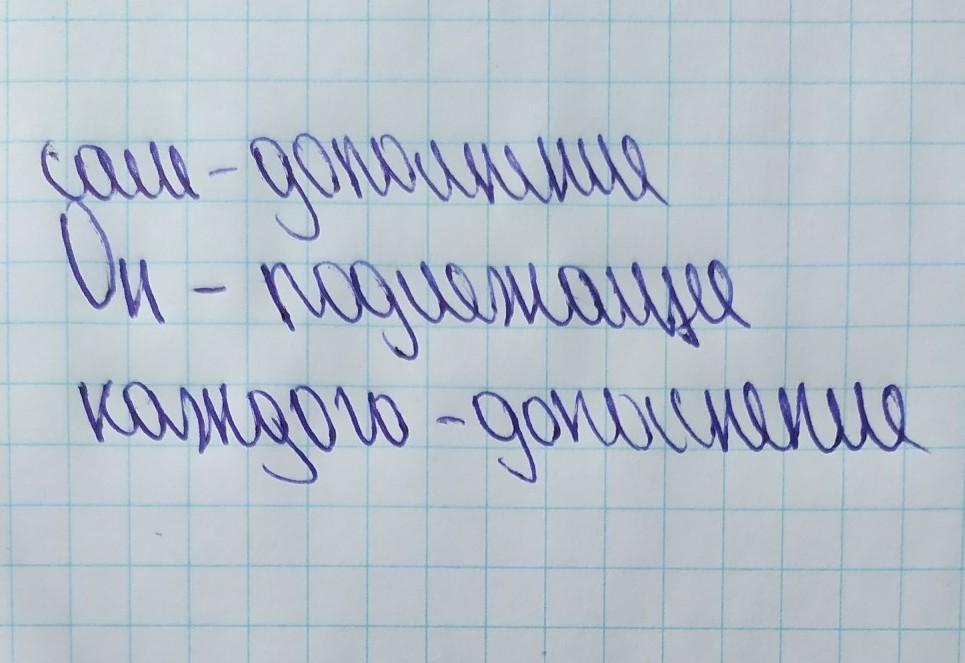 сам - дополнение
Он - подлежащее
каждого - дополнение